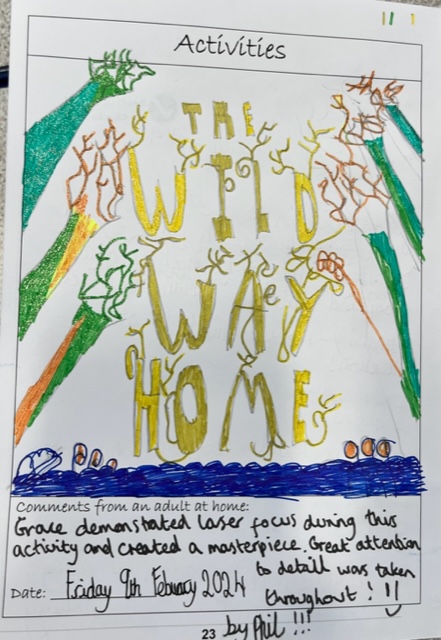 Activities
THE
WILD
WAY
HOME
Comments from an adult at home:
Grace demonstrated laser focus during this
activity and created a masterpiece. Great attention
to detail was taken
Date: Friday 9th Febuary 2024
throughout! !!
by Phil !!!
23